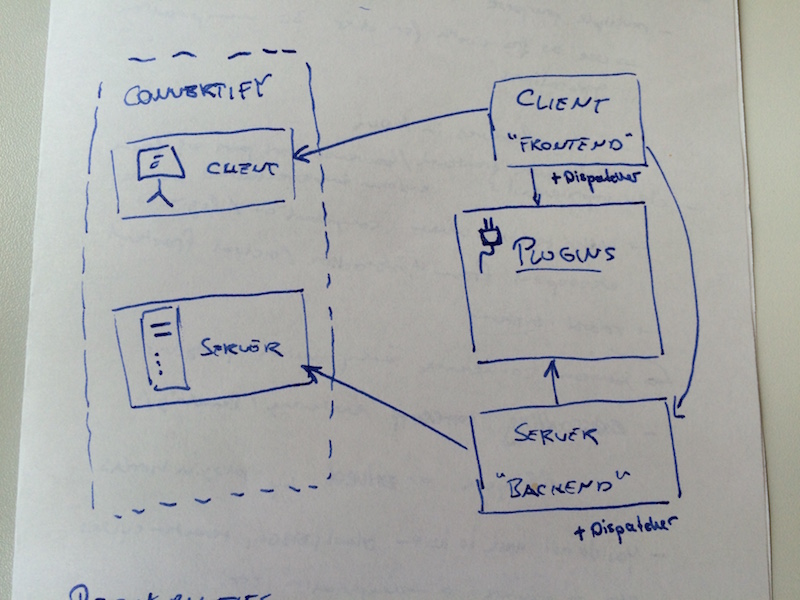 CONVERTIFY
CLIENT
SERVER
CLIENT
"FRONTEND"
+ Dispatcher
PLUGINS
SERVER
"BACKEND"
+ Dispatcher